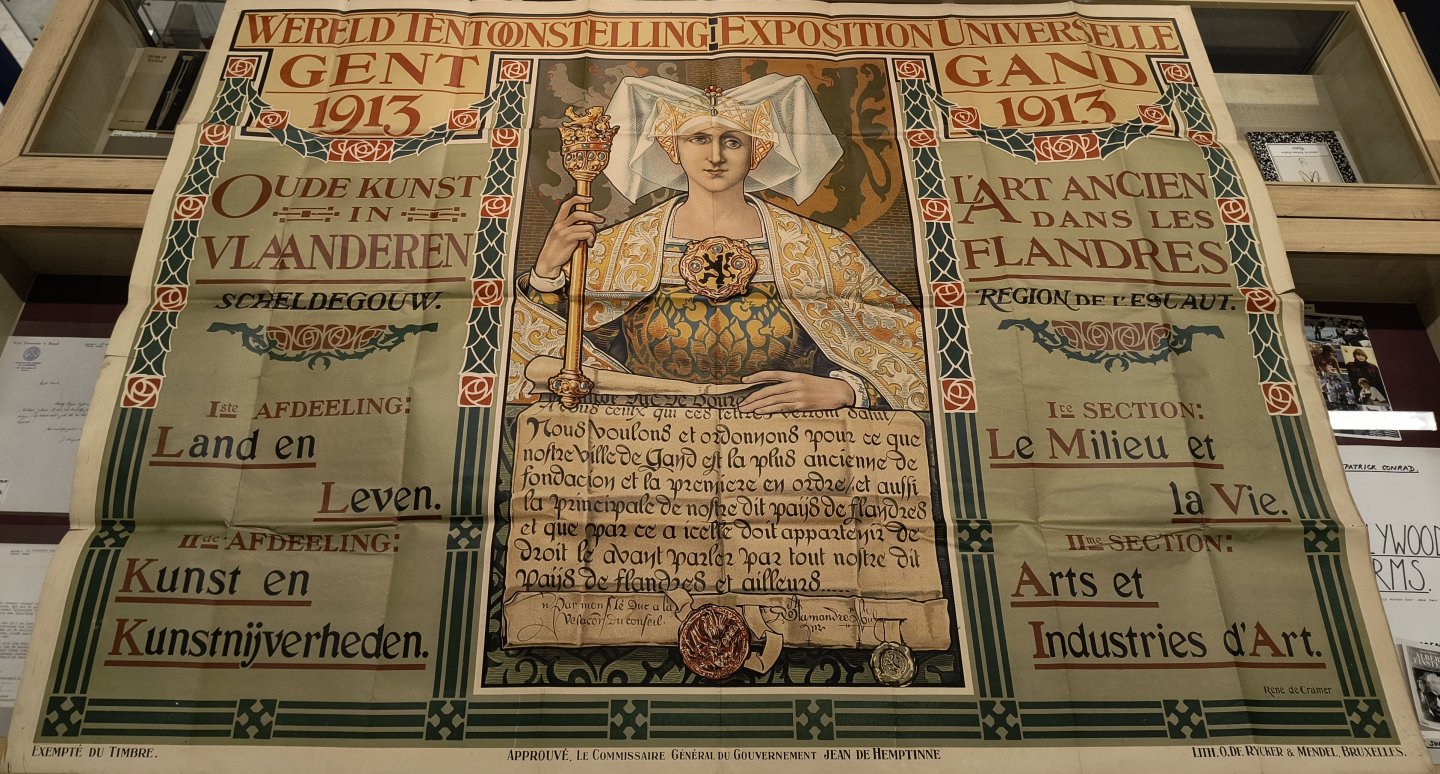 WERELD TENTOONSTELLING : EXPOSITION UNIVERSELLE
GENT
1913
GAND
1913
OUDE KUNST
IN
VLAANDEREN
SCHELDEGOUW.
Iste AFDEELING:
Land en
Leven.
IIde AFDEELING:
Kunst en
Kunstnijverheden.
Nous voulons et ordonnons pour ce que
nostre Ville de Gand est la plus ancienne de
fondacion et la premiere en ordre, et aussi
la principale de nostre dit pays de flandres
et que par ce a icelle doit appartenir de
droit le avant parler par tout nostre dit
pays de flandres et ailleurs
L'ART ANCIEN
DANS LES
FLANDRES
REGION DE L'ESCAUT.
Ire SECTION:
Le Milieu et
la Vie.
IIme SECTION:
Arts et
Industries d'Art.
René de Cramer
EXEMPTÉ DU TIMBRE.
APPROUVÉ, LE COMMISSAIRE GÉNÉRAL DU GOUVERNEMENT JEAN DE HEMPTINNE
LITH. O. DE RYCKER & MENDEL, BRUXELLES.
PATRICK CONRAD.